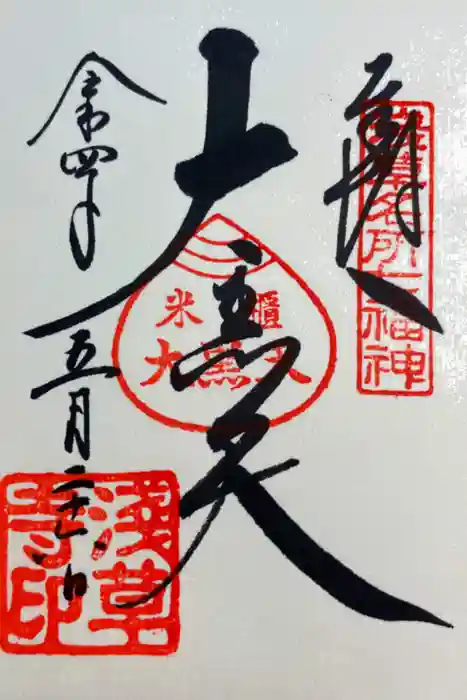 奉拝
浅草名所七福神
大黒天
米櫃
大黒天
令和四年
五月二十六日
淺草
寺印